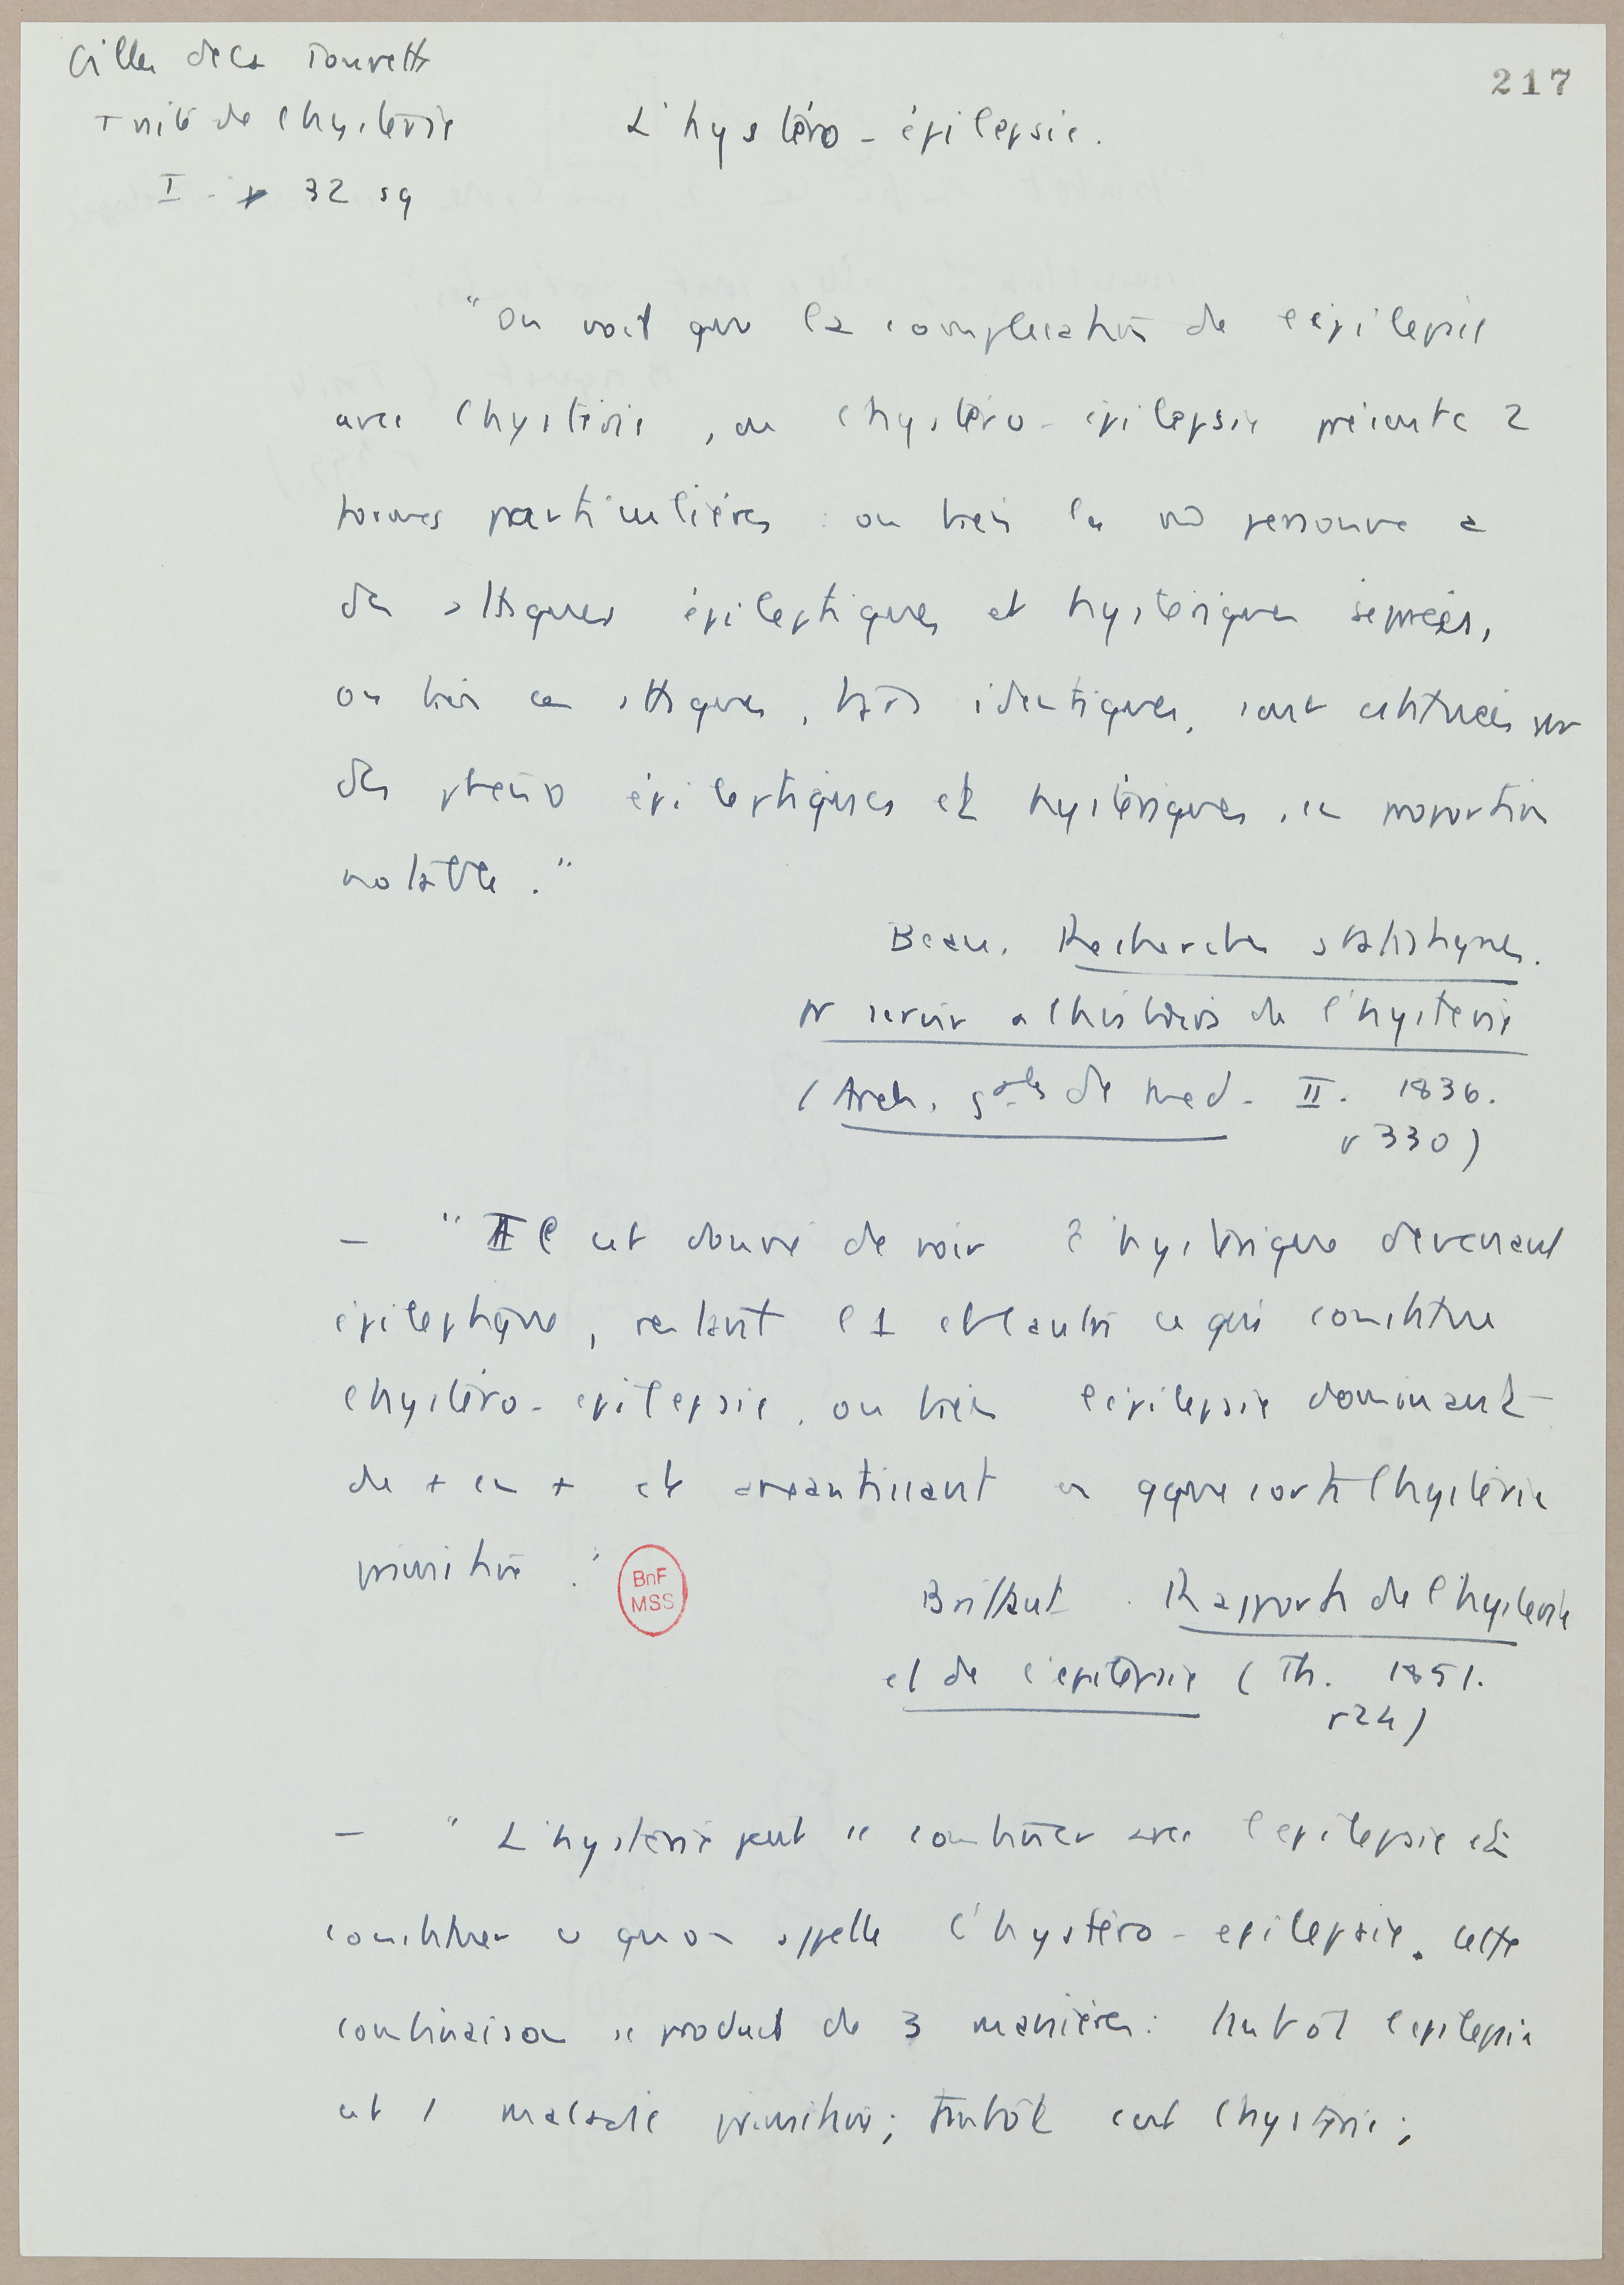 Gilles de la Tourette
Traité de l'hystérie
I - p 32 sq
217
L'hystéro-épilepsie.
"On voit que la complication de l'épilepsie
avec l'hystérie, ou l'hystéro-épilepsie présente 2
formes particulières : ou bien la personne a
des attaques épileptiques et hystériques séparées,
ou bien ces attaques, identiques, sont constituées par
des phéno épileptiques et hystériques, en proportion
notable."
Beau. Recherches statistiques.
pr servir à l'histoire de l'hystérie
(Arch. gales de med. II. 1836.
p 330)
- "Il est donné de voir l'hystérique devenant
épileptique, restant l'1 et l'autre ce qui constitue
l'hystéro-épilepsie, ou bien l'épilepsie dominant
de + en + et anéantissant en qque sorte l'hystérie
primitive."
BnF
MSS
Briffaut. Rapports de l'hystérie
et de l'épilepsie (Th. 1851.
p 24)
- "L'hystérie peut se combiner avec l'épilepsie et
constituer ce qu'on appelle l'hystéro-épilepsie. Cette
combinaison se produit de 3 manières : tantôt l'épilepsie
est 1 maladie primitive; tantôt c'est l'hystérie;